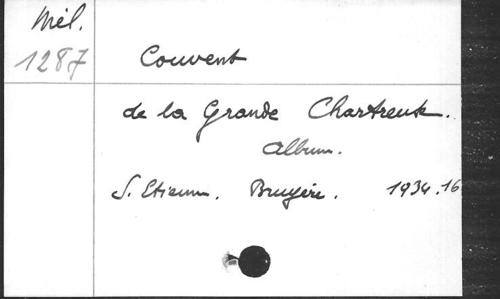 Mél.
1287
Couvent
de la Grande Chartreuse.
Album.
S. Etienne. Bruyère. 1934.16